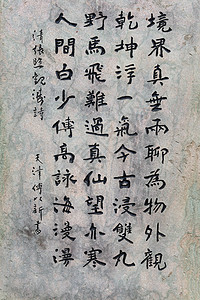 境界真無兩聊為物外觀
乾坤浮一氣今古浸雙丸
野馬飛難過真仙望亦寒
人間白少傳高詠海漫漫
清張照觀海詩 天津傅以新書